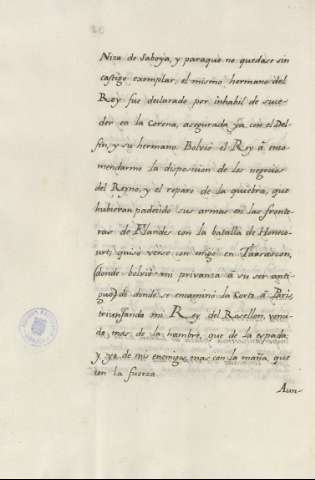 Niza de Saboya, y paraque no quedase sin
castigo exemplar, el mismo hermano del
Rey fue declarado por inhabil de suce-
der en la Corona, asegurada ya con el Del-
fin, y su hermano. Bolvió el Rey á enco-
mendarme la disposicion de los negocios
del Reyno, y el reparo de la quiebra, que
hubieran padecido sus armas en las fronte-
ras de Flandes con la batalla de Honec-
urt; quiso verse con migo en Tarascon,
(donde bolvió mi privanza á su ser anti-
guo) de donde se encaminó la Corte á Paris,
triunfando mi Rey del Rosellon, venci-
do, mas de la hambre, que de la espada;
y yo de mis enemigos, mas con la maña, que
con la fuerza.
Aun-